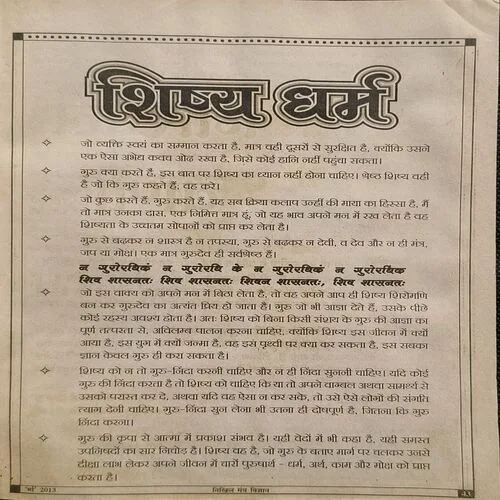 शिष्य धर्म
जो व्यक्ति स्वयं का सम्मान करता है, मात्र वही दूसरों से सुरक्षित है, क्योंकि उसने
एक ऐसा अभेद्य कवच ओढ़ रखा है, जिसे कोई हानि नहीं पहुंचा सकता।
गुरु क्या करते हैं, इस बात पर शिष्य का ध्यान नहीं होना चाहिए। श्रेष्ठ शिष्य वही
है जो कि गुरु कहते हैं, वह करे।
जो कुछ करते हैं, गुरु करते हैं, यह सब क्रिया कलाप उन्हीं की माया का हिस्सा है, मैं
तो मात्र उनका दास, एक निमित्त मात्र हूं, जो यह भाव अपने मन में रख लेता है वह
शिष्यता के उच्चतम सोपानों को प्राप्त कर लेता है।
गुरु से बढ़कर न शास्त्र है न तपस्या, गुरु से बढ़कर न देवी, न देव और न ही मंत्र,
जप या मोक्ष। एक मात्र गुरुदेव ही सर्वश्रेष्ठ हैं।
न गुरोरधिकं न गुरोरधि के न गुरोरधिकं न गुरोरधिक
शिव शासनतः शिव शासनतः शिवन शासनतः, शिव शासनतः
जो इस वाक्य को अपने मन में बिठा लेता है, तो वह अपने आप ही शिष्य शिरोमणि
बन कर गुरुदेव का अत्यंत प्रिय हो जाता है। गुरु जो भी आज्ञा देते हैं, उसके पीछे
कोई रहस्य अवश्य होता है। अतः शिष्य को बिना किसी संशय के गुरु की आज्ञा का
पूर्ण तत्परता से, अविलम्ब पालन करना चाहिए, क्योंकि शिष्य इस जीवन में क्यों
आया है, इस युग में क्यों जन्मा है, वह इस पृथ्वी पर क्या कर सकता है, इस सबका
ज्ञान केवल गुरु ही करा सकता है।
शिष्य को न तो गुरु-निंदा करनी चाहिए और न ही निंदा सुननी चाहिए। यदि कोई
गुरु की निंदा करता है तो शिष्य को चाहिए कि या तो अपने वाग्बल अथवा सामर्थ्य से
उसको परास्त कर दे, अथवा यदि वह ऐसा न कर सके, तो उसे ऐसे लोगों की संगति
त्याग देनी चाहिए। गुरु-निंदा सुन लेना भी उतना ही दोषपूर्ण है, जितना कि गुरु
निंदा करना।
गुरु की कृपा से आत्मा में प्रकाश संभव है। यही वेदों में भी कहा है, यही समस्त
उपनिषदों का सार निचोड़ है। शिष्य वह है, जो गुरु के बताए मार्ग पर चलकर उनसे
दीक्षा लाभ लेकर अपने जीवन में चारों पुरुषार्थ - धर्म, अर्थ, काम और मोक्ष को प्राप्त
करता है।
'मई' 2013 निखिल मंत्र विज्ञान 43